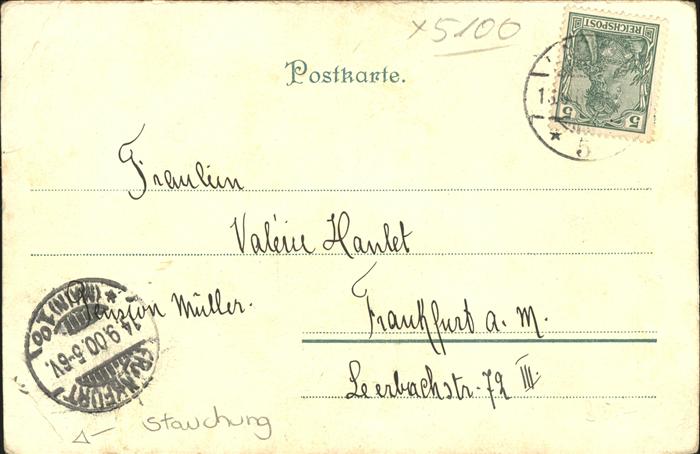 x5100
REICHSPOST
5 5
Postkarte.
5
Fräulein
Valérie Hanlet
Pension Müller.
Frankfurt a. M.
Leerbachstr. 72 III.
FRANKFURT
14.9.00.5-6V.
(MAIN) 1
Stauchung